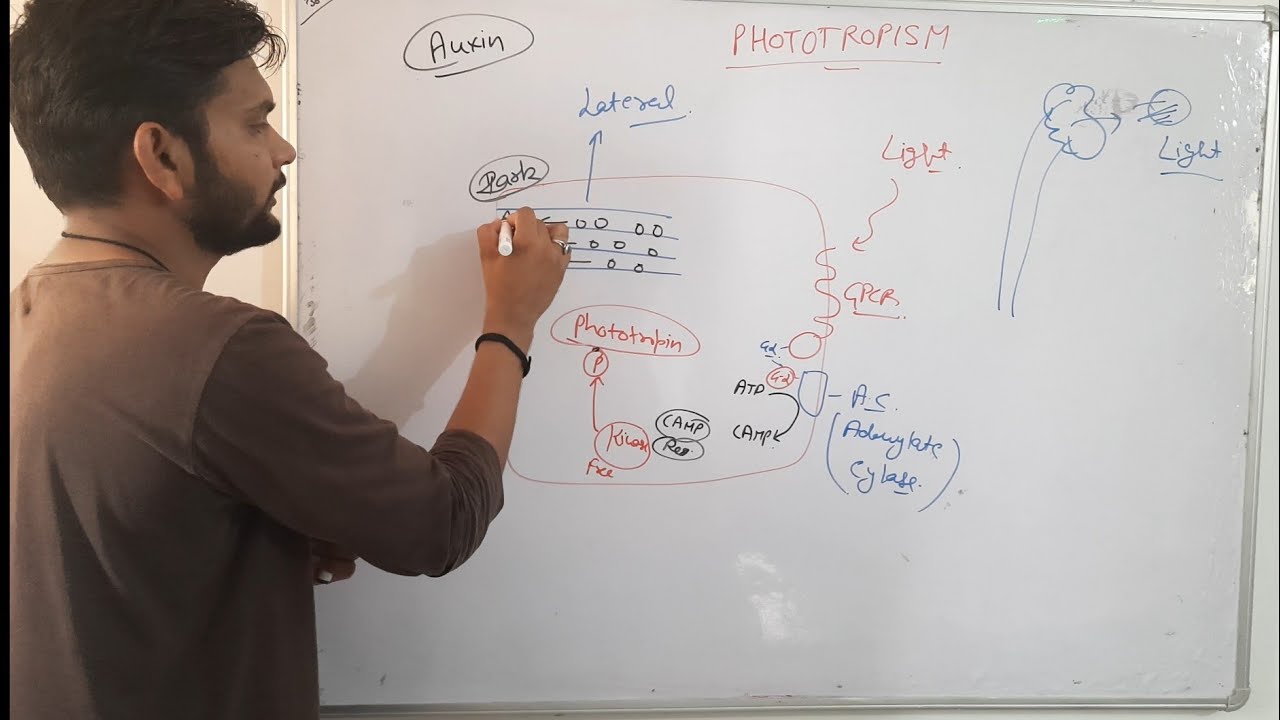 Auxin
PHOTOTROPISM
Lateral
Light
Light
Dark
GPCR
Phototropin
P
Gα
Gα
ATP
CAMP
A.C.
(Adenylate
Cyclase)
Kinase
Free
CAMP
Reg.